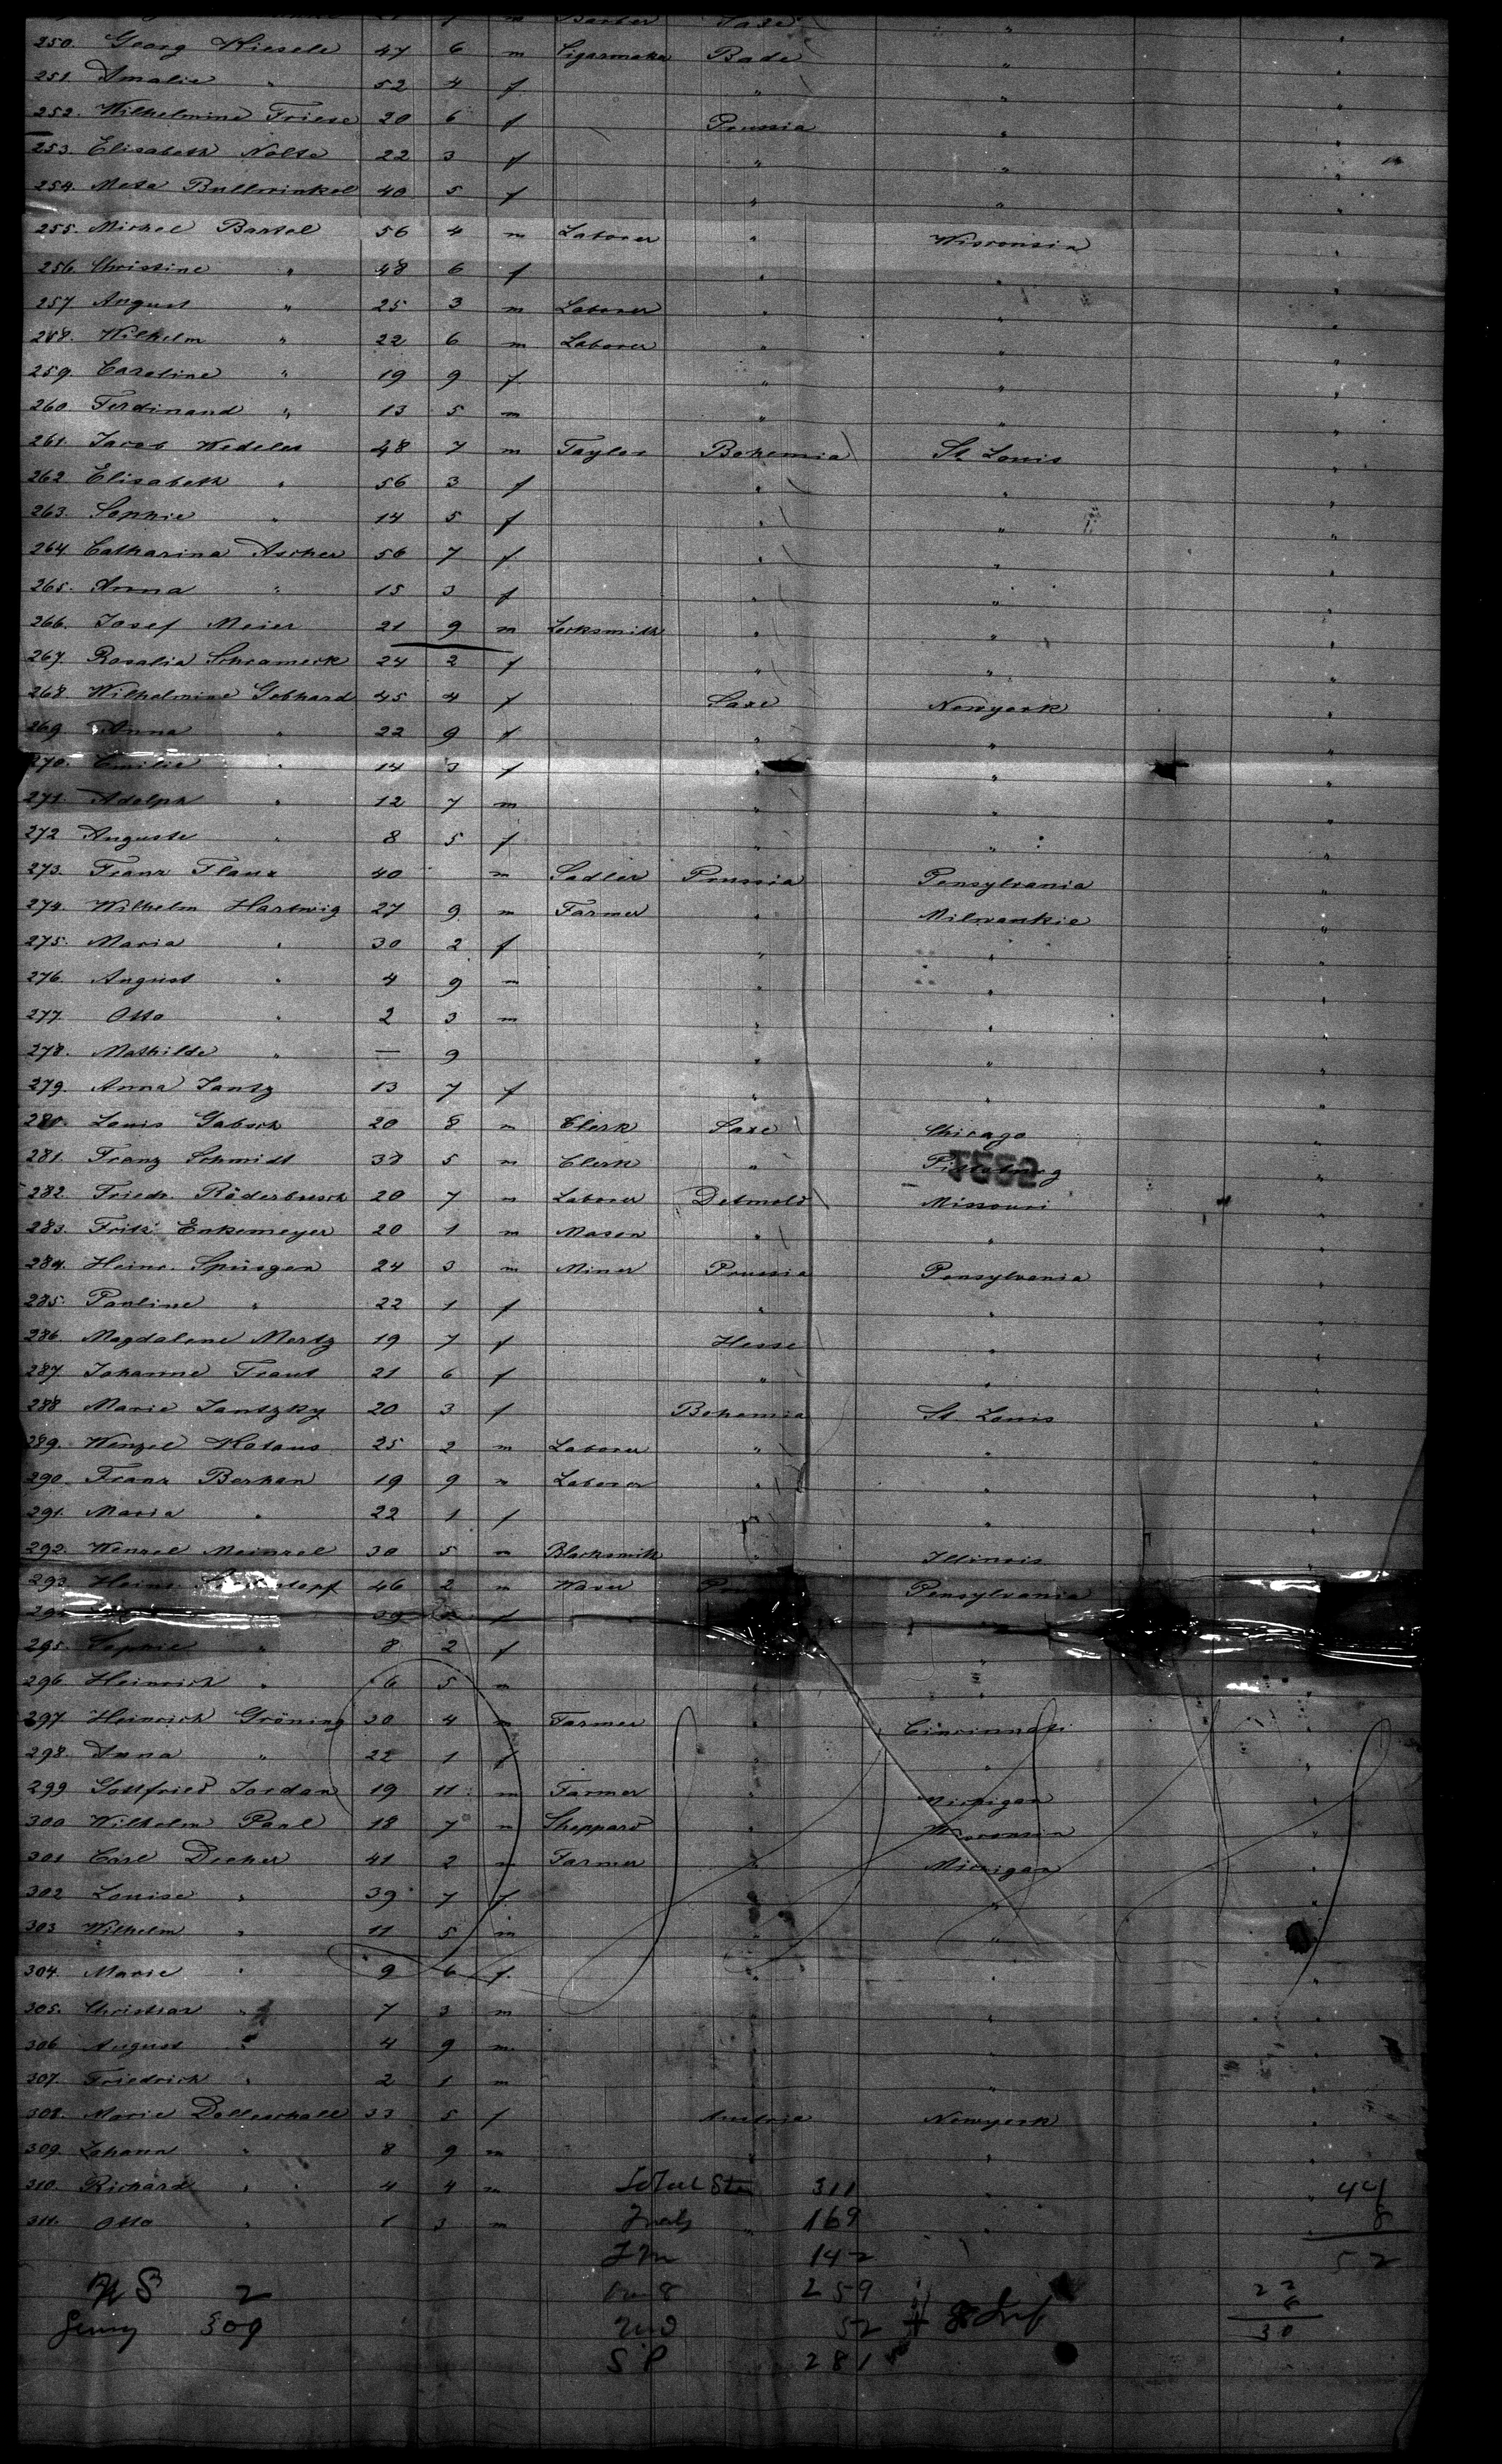 Barber Saxe "
250. Georg Kiesele 47 6 m Cigarmaker Bade " "
251 Amalie " 52 4 f " " "
252. Wilhelmine Friese 20 6 f Prussia " "
253. Elisabeth Nolte 22 3 f " " "
254. Meta Bullwinkel 40 5 f " " "
255. Michel Bartel 56 4 m Laborer " Wisconsin "
256. Christine " 48 6 f " " "
257 August " 25 3 m Laborer " " "
258. Wilhelm " 22 6 m Laborer " " "
259. Caroline " 19 9 f " " "
260. Ferdinand " 13 5 m " " "
261. Jacob Wedeles 48 7 m Taylor Bohemia St. Louis "
262 Elisabeth " 56 3 f " " "
263. Sophie " 14 5 f " " "
264. Catharina Ascher 56 7 f " " "
265. Anna " 15 3 f " " "
266. Josef Meier 21 9 m Locksmith " " "
267. Rosalia Schrameck 24 2 f " " "
268. Wilhelmine Gebhard 45 4 f Saxe Newyork "
269 Anna " 22 9 f " " "
270. Emilie " 14 3 f " " "
271. Adolph " 12 7 m " " "
272 Auguste " 8 5 f " " "
273. Franz 40 m Sadler Prussia Pensylvania "
274. Wilhelm Hartwig 27 9 m Farmer " Milwaukie "
275. Maria " 30 2 f " " "
276. August " 4 9 m " " "
277 Otto " 2 3 m " " "
278. Mathilde " — 9 " " "
279. Anna Jantz 13 7 f " " "
280. Louis Gabsch 20 8 m Clerk Saxe Chicago "
281. Franz Schmidt 38 5 m Clerk " Pittsburg "
282. Friedr. Räderbusch 20 7 m Laborer Detmold Missouri "
283. Fritz Enkemeyer 20 1 m Mason " " "
284. Heinr. Spürgen 24 3 m Miner Prussia Pensylvania "
285. Pauline " 22 1 f " " "
286. Magdalene Mertz 19 7 f Hesse " "
287. Johanne Traut 21 6 f " " "
288 Marie Jantzky 20 3 f Bohemia St Louis "
289. Wenzel 25 2 m Laborer " " "
290. Franz Berkan 19 9 m Laborer " " "
291. Maria " 22 1 f " " "
292. Wenzel Meinzel 30 5 m Blacksmith " Illinois "
293 Heinr. 46 2 m Pensylvania "
39 f
295. Sophie " 8 2 f " "
296 Heinrich " 6 5 m " "
297 Heinrich Gröning 30 4 m Farmer " Cincinnati "
298. Anna " 22 1 f " " "
299 Gottfried Jordan 19 11 m Farmer " Michigan "
300 Wilhelm Paul 18 7 m Sheppard " Wisconsin "
301 Carl Decker 41 2 m Farmer " Michigan "
302 Louise " 39 7 f " " "
303 Wilhelm " 11 5 m " " "
304. Marie " 9 6 f. " " "
305. Christian " 7 3 m " " "
306 August " 4 9 m " " "
307. Friedrich " 2 1 m " " "
308. Marie Dolleschall 33 5 f Austria Newyork "
309. Johann " 8 9 m " " "
310. Richard " 4 4 m 311 " 44
311. Otto " 1 3 m 169 " 8
142 52
259 22
2 52 8
309 30
S P 281